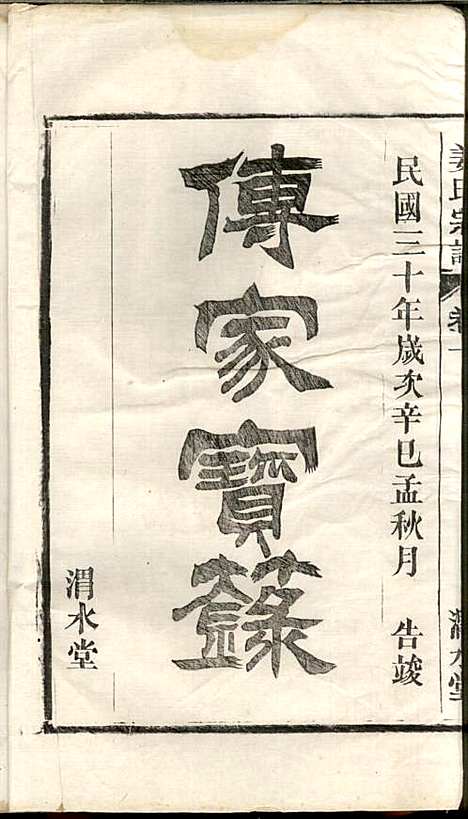 姜氏宗譜
卷一
渭水堂
民國三十年歲次辛巳孟秋月 告竣
傳家寶籙
渭水堂